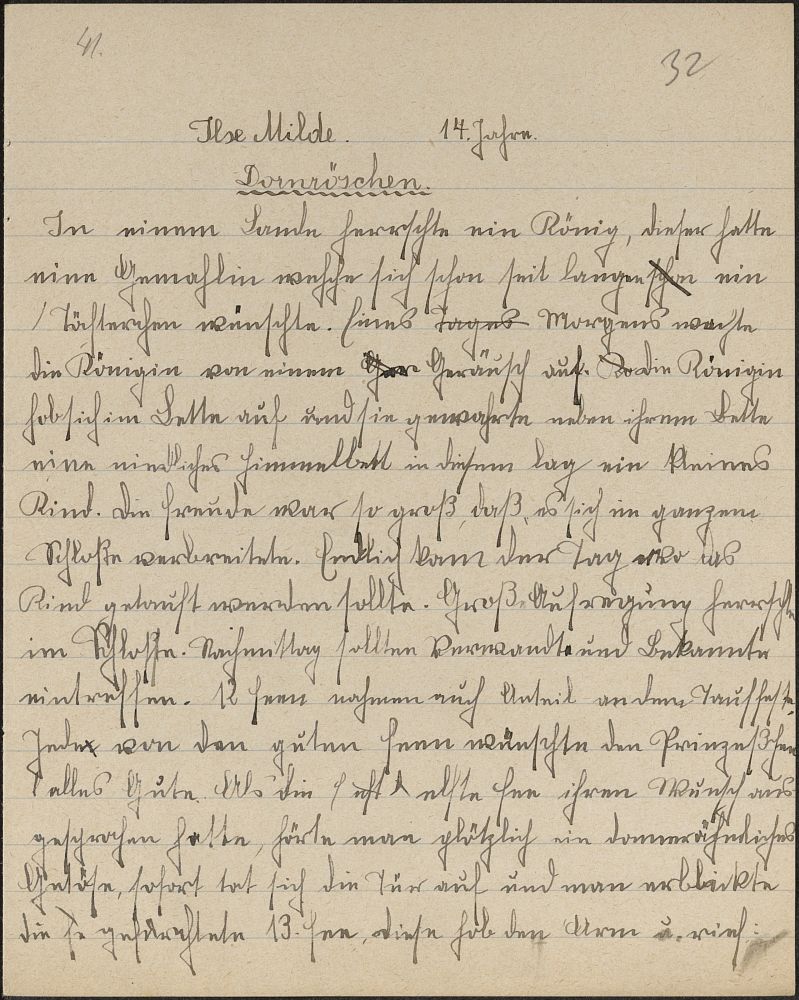 41.
32
Ilse Milde. 14. Jahre.
Dornröschen.
In einem Lande herrschte ein König, dieser hatte
eine Gemahlin welche sich schon seit langen schon ein
Töchterchen wünschte. Eines Tages Morgens wachte
die Königin von einem Geräusch auf. Die Königin
hob sich im Bette auf und sie gewahrte neben ihrem Bette
eine niedliches Himmelbett in diesem lag ein kleines
Kind. Die Freude war so groß, daß es sich im ganzem
Schloße verbreitete. Endlich kam der Tag wo das
Kind getauft werden sollte. Große Aufregung herrschte
im Schloße. Nachmittag sollten Verwandte und Bekannte
eintreffen. 12 Feen nahmen auch Anteil an dem Tauffeste.
Jede von den guten Feen wünschte den Prinzeßchen
alles Gute. Als die elfte Fee ihren Wunsch aus
gesprochen hatte, hörte man plötzlich ein donnerähnliches
Getöse, sofort tat sich die Tür auf und man erblickte
die gefürchtete 13. Fee, diese hob den Arm u. rief: